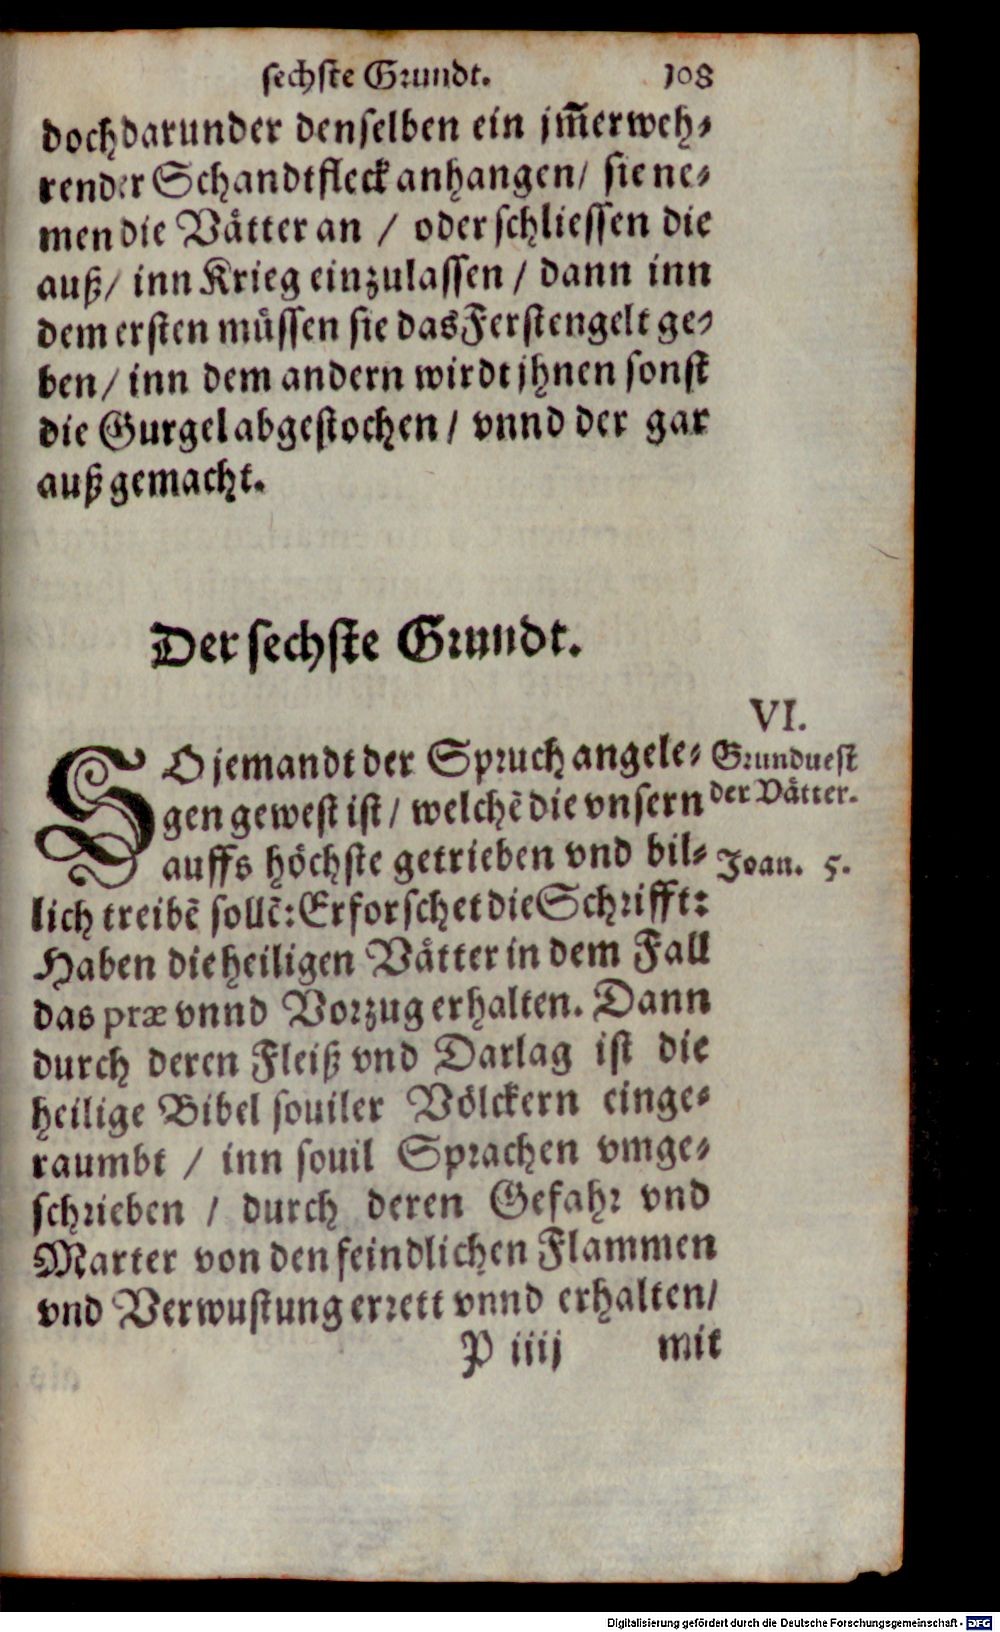 sechste Grundt. 108
doch darunder denselben ein jm̃erweh⸗
render Schandtfleck anhangen/ sie ne⸗
men die Vaͤtter an / oder schliessen die
auß/ inn Krieg einzulassen / dann inn
dem ersten muͤssen sie das Ferstengelt ge⸗
ben/ inn dem andern wirdt jhnen sonst
die Gurgel abgestochen/ vnnd der gar
auß gemacht.
Der sechste Grundt.
VI.
Grunduest
der Vaͤtter.
Joan. 5.
SO jemandt der Spruch angele⸗
gen gewest ist/ welchẽ die vnsern
auffs hoͤchste getrieben vnd bil⸗
lich treibẽ sollẽ: Erforschet die Schrifft:
Haben die heiligen Vaͤtter in dem Fall
das præ vnnd Vorzug erhalten. Dann
durch deren Fleiß vnd Darlag ist die
heilige Bibel souiler Voͤlckern einge⸗
raumbt / inn souil Sprachen vmge⸗
schrieben / durch deren Gefahr vnd
Marter von den feindlichen Flammen
vnd Verwustung errett vnnd erhalten/
P iiij mit
Digitalisierung gefördert durch die Deutsche Forschungsgemeinschaft - DFG